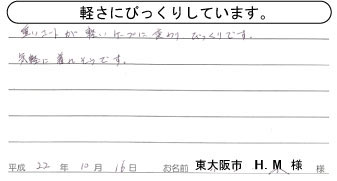 軽さにびっくりしています。
重いコートが軽いケープに変わりびっくりです。
気軽に着れそうです。
平成 22 年 10 月 16 日 お名前 東大阪市 H.M 様 様